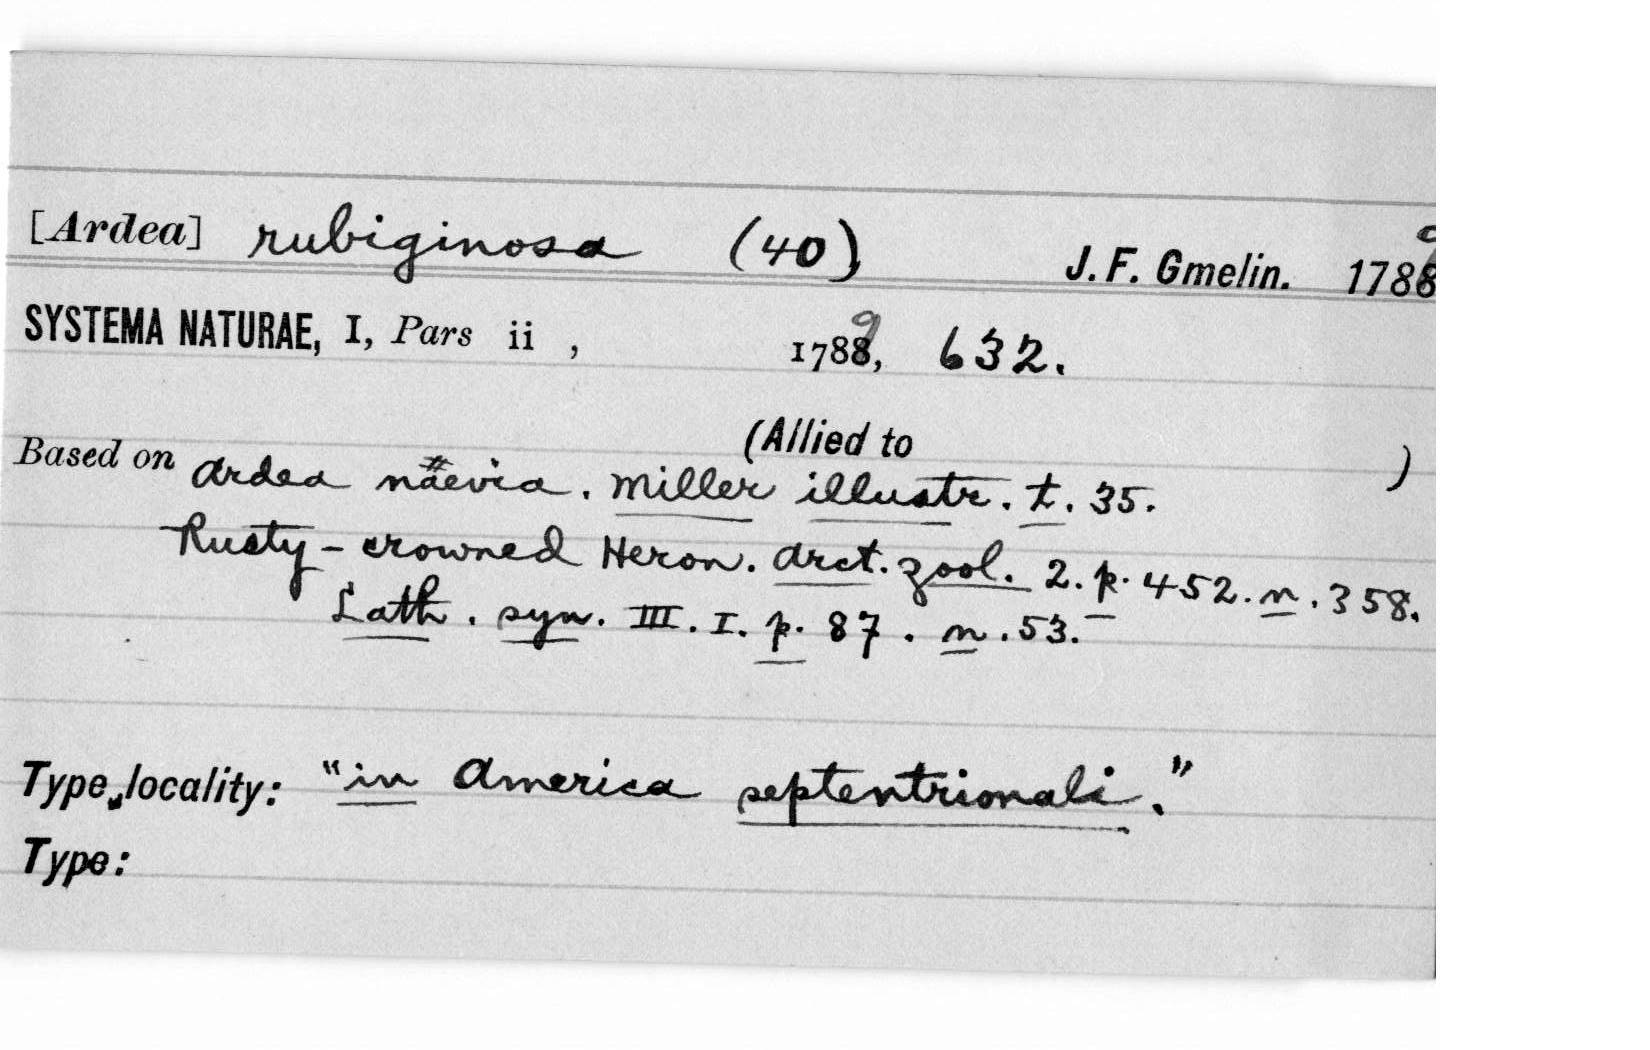 [Ardea] rubiginosa (40) J. F. Gmelin. 1789
SYSTEMA NATURAE, I, Pars ii , 1789, 632.
(Allied to )
Based on Ardea naevia. Miller illustr. t. 35.
Rusty-crowned Heron. Arct. zool. 2. p. 452. n. 358.
Lath. syn. III. I. p. 87. n. 53.
Type locality: "in America septentrionali."
Type: